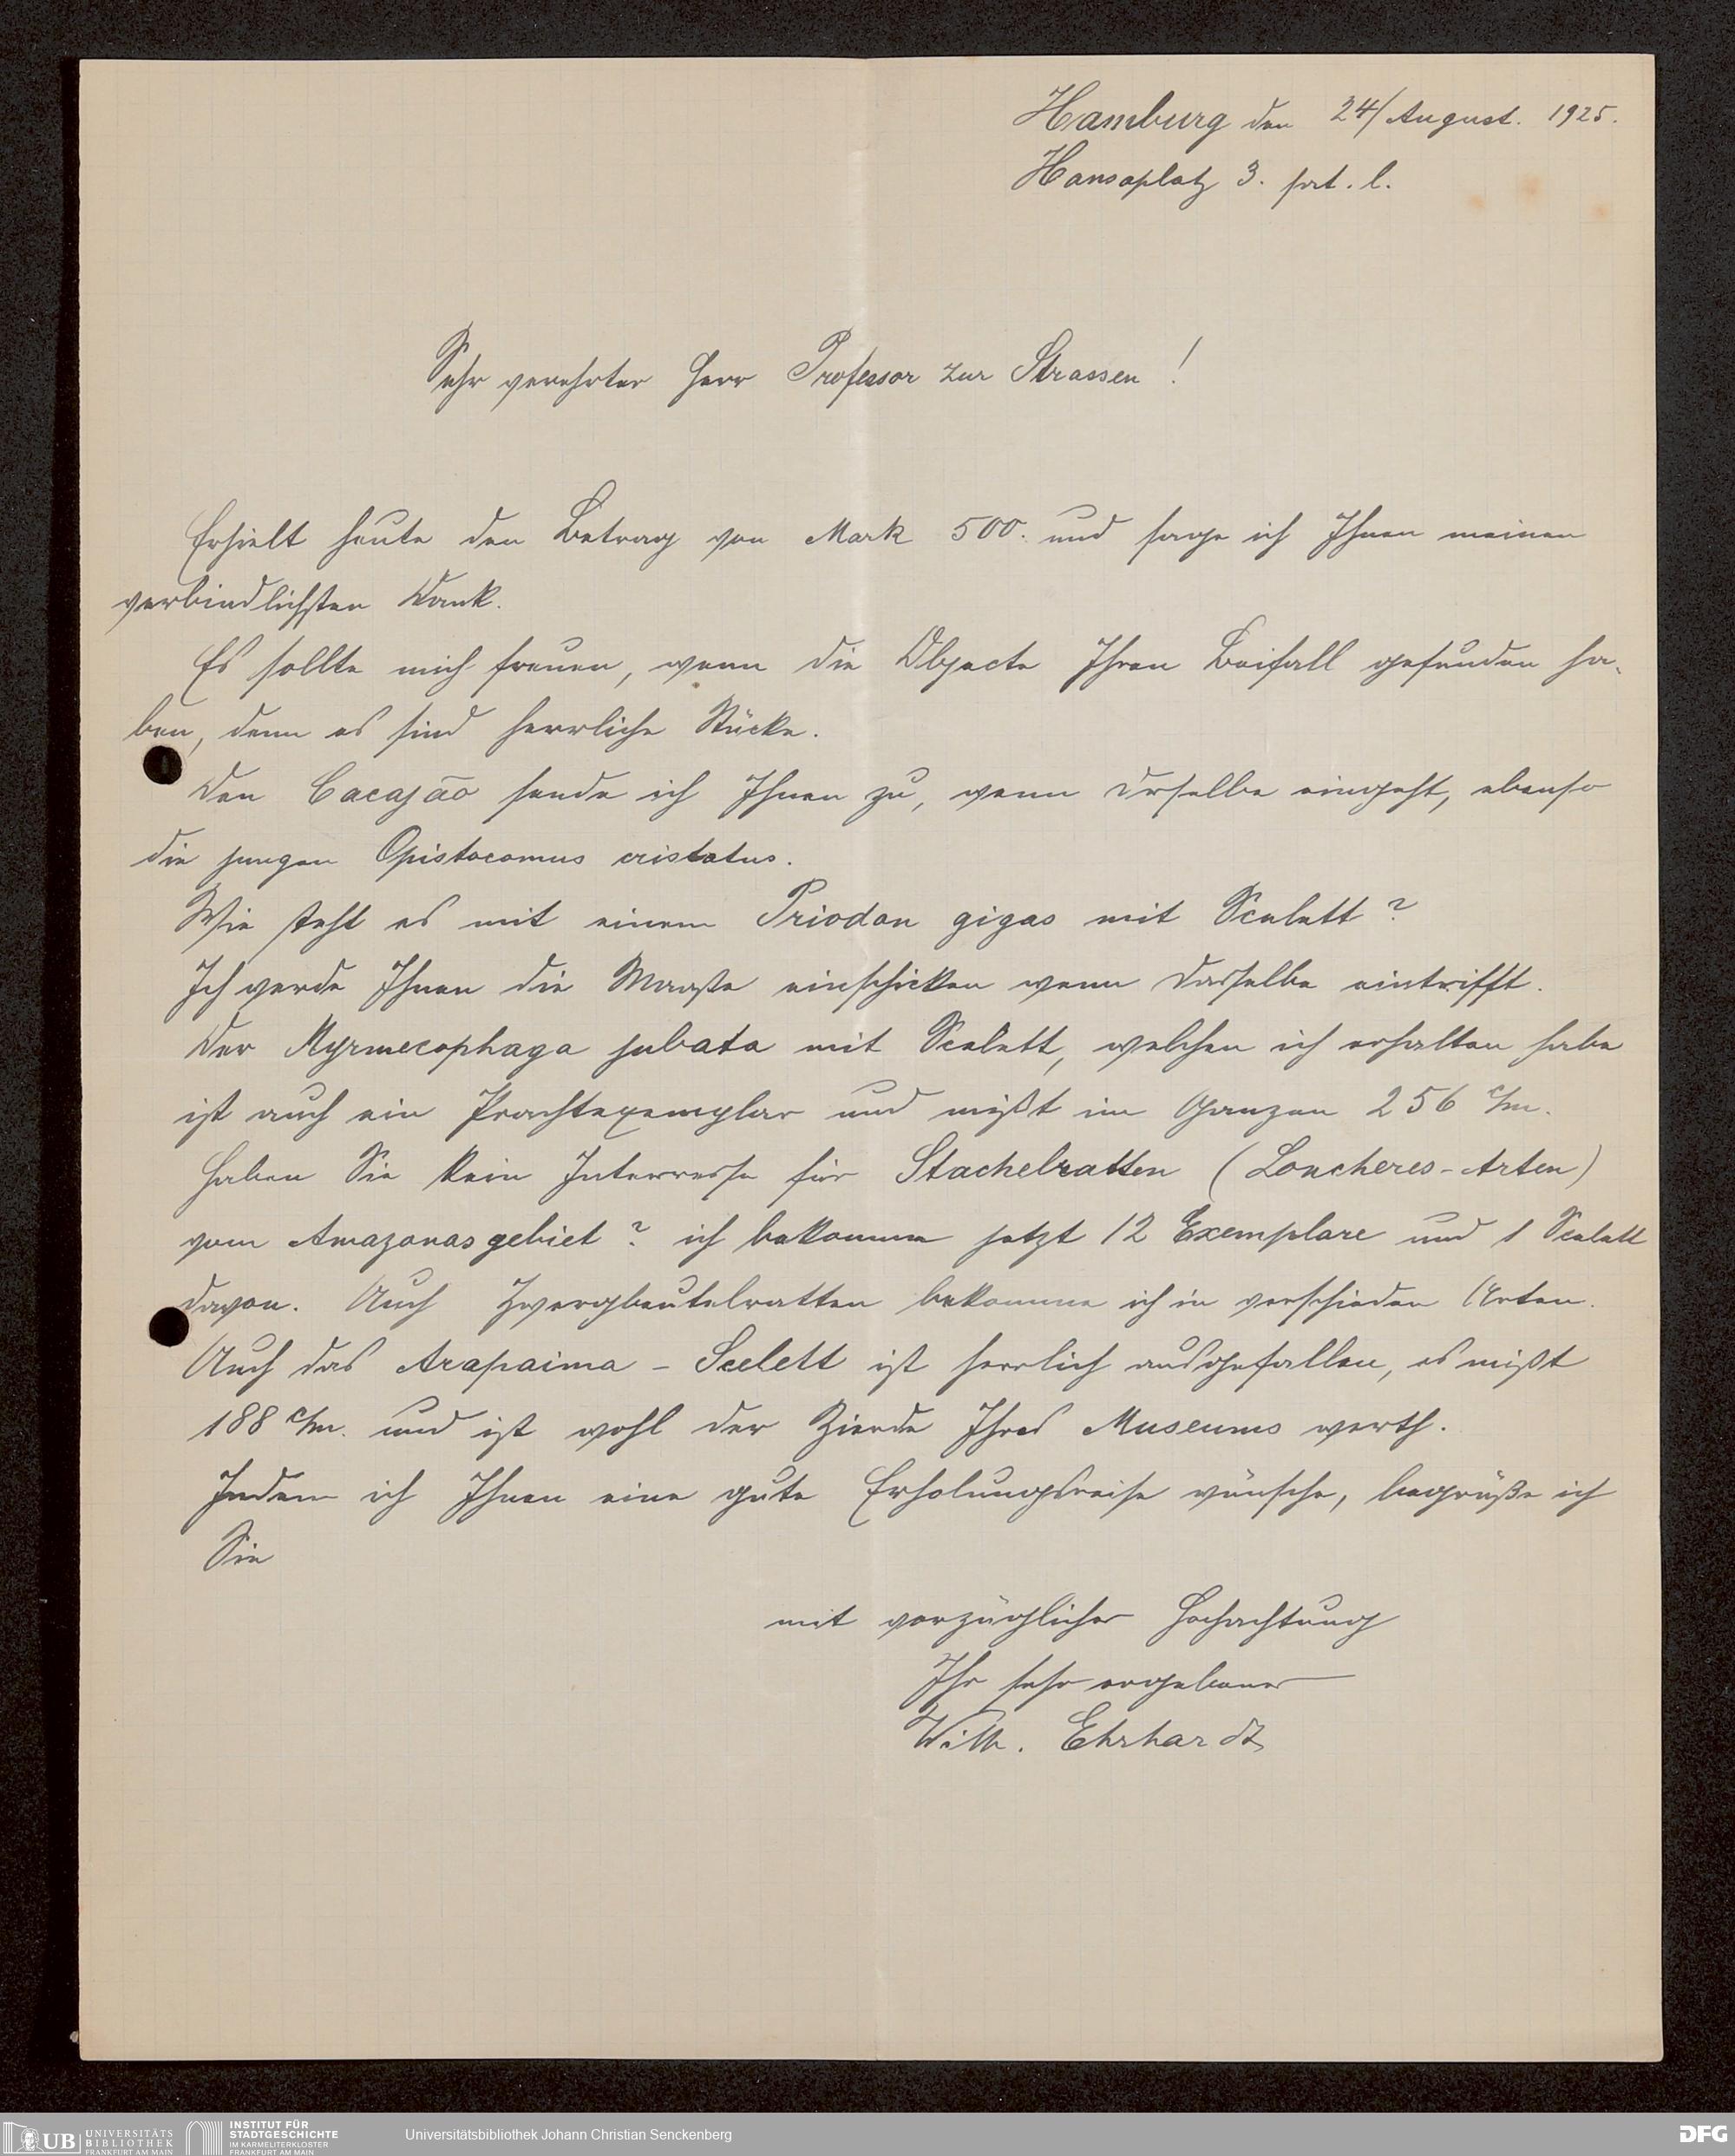 Hamburg den 24/August. 1925.
Hansaplatz 3. prt. l.
Sehr verehrter Herr Professor zur Strassen!
Erhielt heute den Betrag von Mark 500. und sage ich Ihnen meinen
verbindlichsten Dank.
Es sollte mich freuen, wenn die Objecte Ihren Beifall gefunden ha-
ben, denn es sind herrliche Stücke.
Den Cacajão sende ich Ihnen zu, wenn derselbe eingeht, ebenso
die jungen Opistocomus cristatus.
Wie steht es mit einem Priodon gigas mit Scelett?
Ich werde Ihnen die Maaße einschicken wenn dasselbe eintrifft.
Der Myrmecophaga jubata mit Scelett, welchen ich erhalten habe
ist auch ein Prachtexemplar und mißt im Ganzen 256 c/m.
Haben Sie kein Interresse für Stachelratten (Loncheres-Arten)
vom Amazonasgebiet? ich bekomme jetzt 12 Exemplare und 1 Scelett
davon. Auch Zwergbeutelratten bekomme ich in verschieden Arten.
Auch das Arapaima-Scelett ist herrlich ausgefallen, es mißt
188 c/m. und ist wohl der Zierde Ihres Museums werth.
Indem ich Ihnen eine gute Erholungsreise wünsche, begrüße ich
Sie
mit vorzüglicher Hochachtung
Ihr sehr ergebener
Wilh. Ehrhardt
UB UNIVERSITÄTS
BIBLIOTHEK
FRANKFURT AM MAIN
INSTITUT FÜR
STADTGESCHICHTE
IM KARMELITERKLOSTER
FRANKFURT AM MAIN
Universitätsbibliothek Johann Christian Senckenberg
DFG